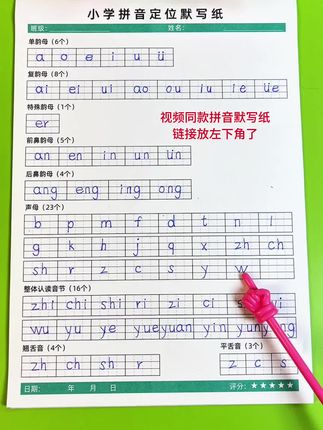 小学拼音定位默写纸
班级: 姓名:
单韵母 (6个)
a o e i u ü
复韵母 (8个)
ai ei ui ao ou iu ie üe
特殊韵母 (1个)
er
视频同款拼音默写纸
链接放左下角了
前鼻韵母 (5个)
an en in un ün
后鼻韵母 (4个)
ang eng ing ong
声母 (23个)
b p m f d t n l
g k h j q x zh ch
sh r z c s y w
整体认读音节 (16个)
zhi chi shi ri zi ci
wu yu ye yue yuan yin
翘舌音 (4个) 平舌音 (3个)
zh ch sh r z c s
日期: 年 月 日 评分: ★★★★★